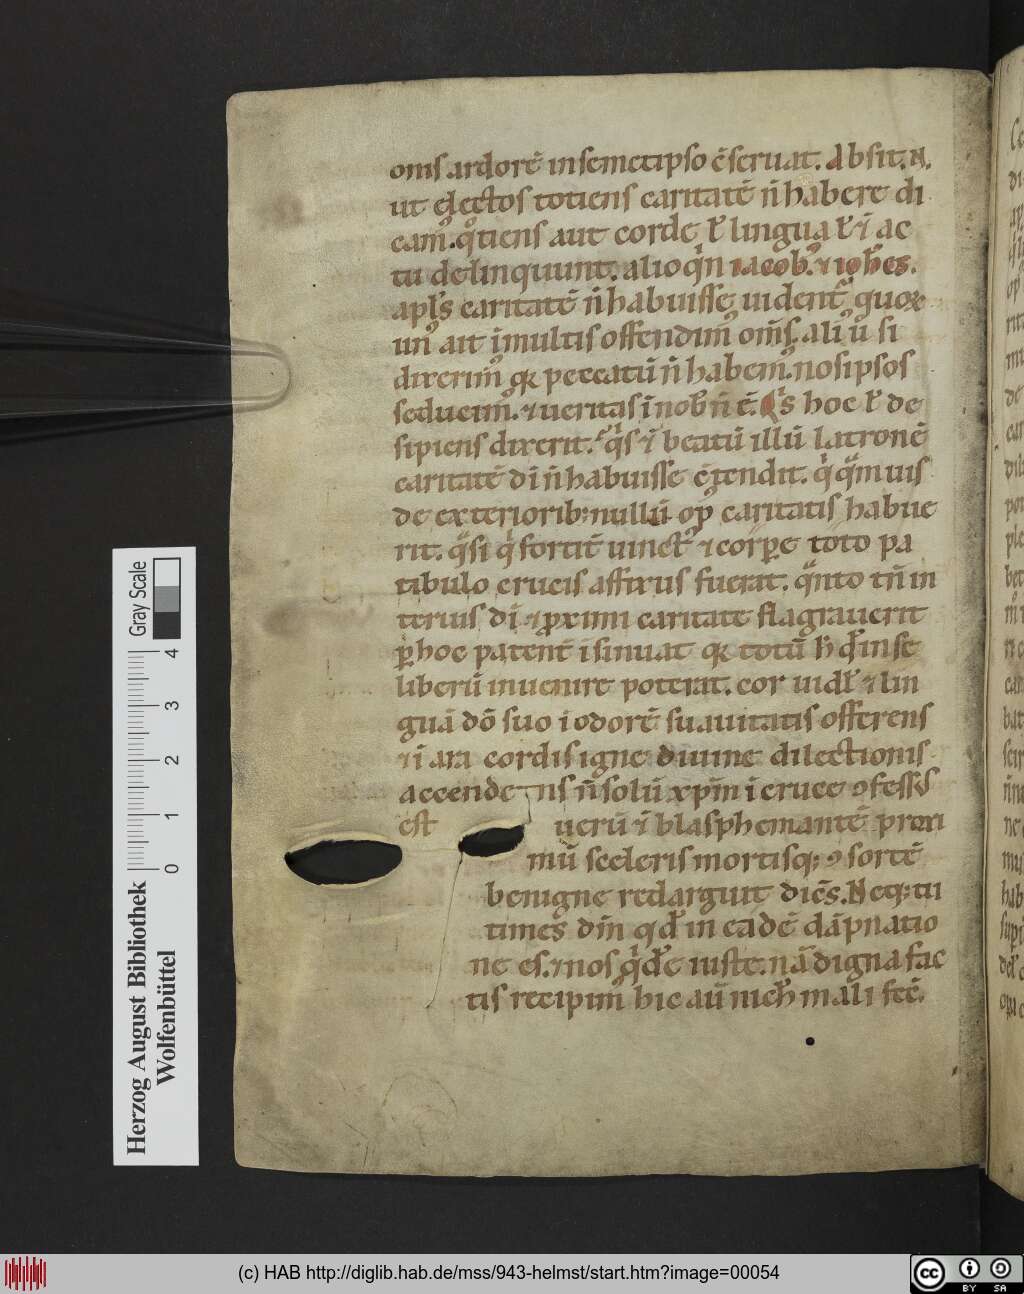 om̅s ardorē in semetipso c̄seruat. Absit. N.
ut electos totiens caritatē n̄ habere di
cam̄. qͦtiens aut corde ł lingua ł ī ac
tu delinquunt. alioqͥn iacob᷒ ⁊ ioh̄es.
apl̄s caritatē n̄ habuisse uident᷒ quoꝝ
un᷒ ait ī multis offendim᷒ om̄s. ali᷒ ū si
dixerim᷒ qꝛ peccatū n̄ habem᷒. nos ipsos
seducim᷒. ⁊ ueritas ī nob̄ n̄ ē. Qͥs hoc ł de
sipiens dixerit. qͥs ī beatū illū latronē
caritatē dī n̄ habuisse c̄tendit. qͥ qᷓmuis
de exteriorib; nullū op᷒ caritatis habue
rit. qᷓsi qͥ fortit̄ uinct᷒ ⁊ corꝑe toto pa
tibulo crucis affixus fuerat. qᷓnto tn̄ in
terius dī ⁊ ꝓximi caritate flagrauerit
ꝑ hoc patent̄ īsinuat qꝛ totū h̄ qđ in se
liberū inuenire poterat. cor uidł ⁊ lin
guā dō suo ī odorē suauitatis offerens
⁊ ī ara cordis igne diuine dilectionis
accendens n̄ solū xp̄m ī cruce ꝯfessus
est uerū ī blasphemantē proxi
mū sceleris mortisq; ꝯsortē
benigne redarguit dicēs. Neq; tu
times dn̄m qđ in eadē dāpnatio
ne es. ⁊ nos qͥdē iuste. nā digna fac
tis recipim᷒ hic aū nich̄ mali fec̄.
Herzog August Bibliothek
Wolfenbüttel
Gray Scale
0 1 2 3 4
(c) HAB http://diglib.hab.de/mss/943-helmst/start.htm?image=00054
cc BY SA